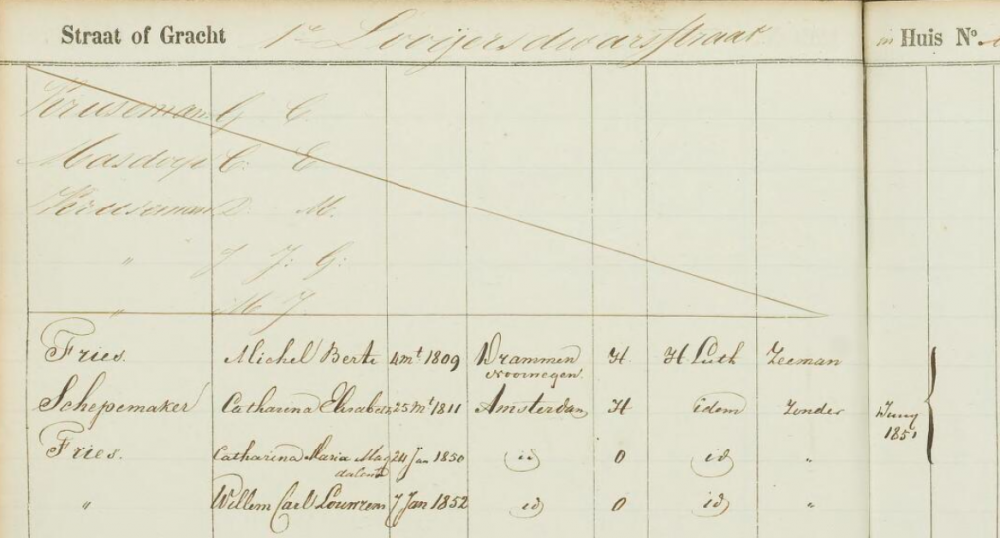 Straat of Gracht 1e Looijersdwarsstraat in Huis No.
Kruseman G C.
Masdorp C: E
Kruseman D. M.
" J J: G:
" M J
Fries. Michel Berth 4 mt 1809 Drammen H H Luth Zeeman
Noorwegen.
Schepemaker Catharina Elisabeth 25 mt 1811 Amsterdam H idem Zonder Juny
1851
Fries. Catharina Maria Mag 24 Jan 1850 id O id "
dalena
" Willem Carl Lourens 7 Jan 1852 id O id "